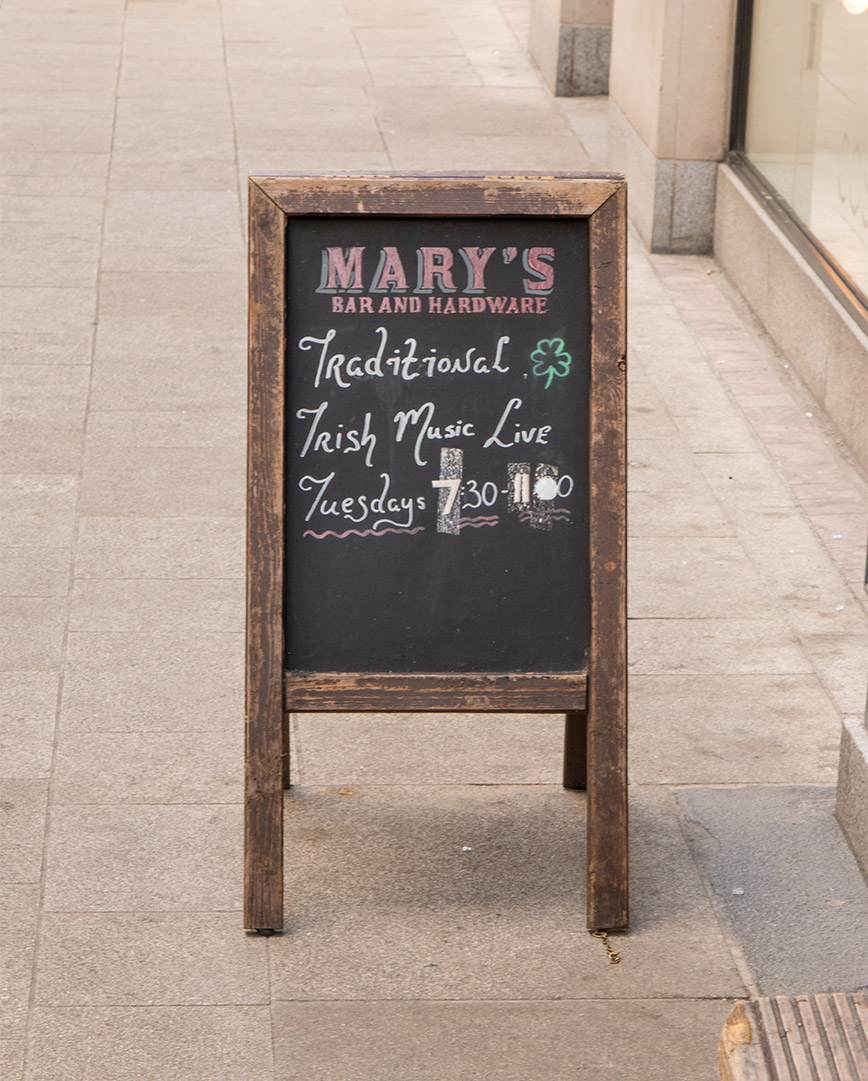 MARY'S
BAR AND HARDWARE
Traditional
Irish Music Live
Tuesdays 7:30-11:00